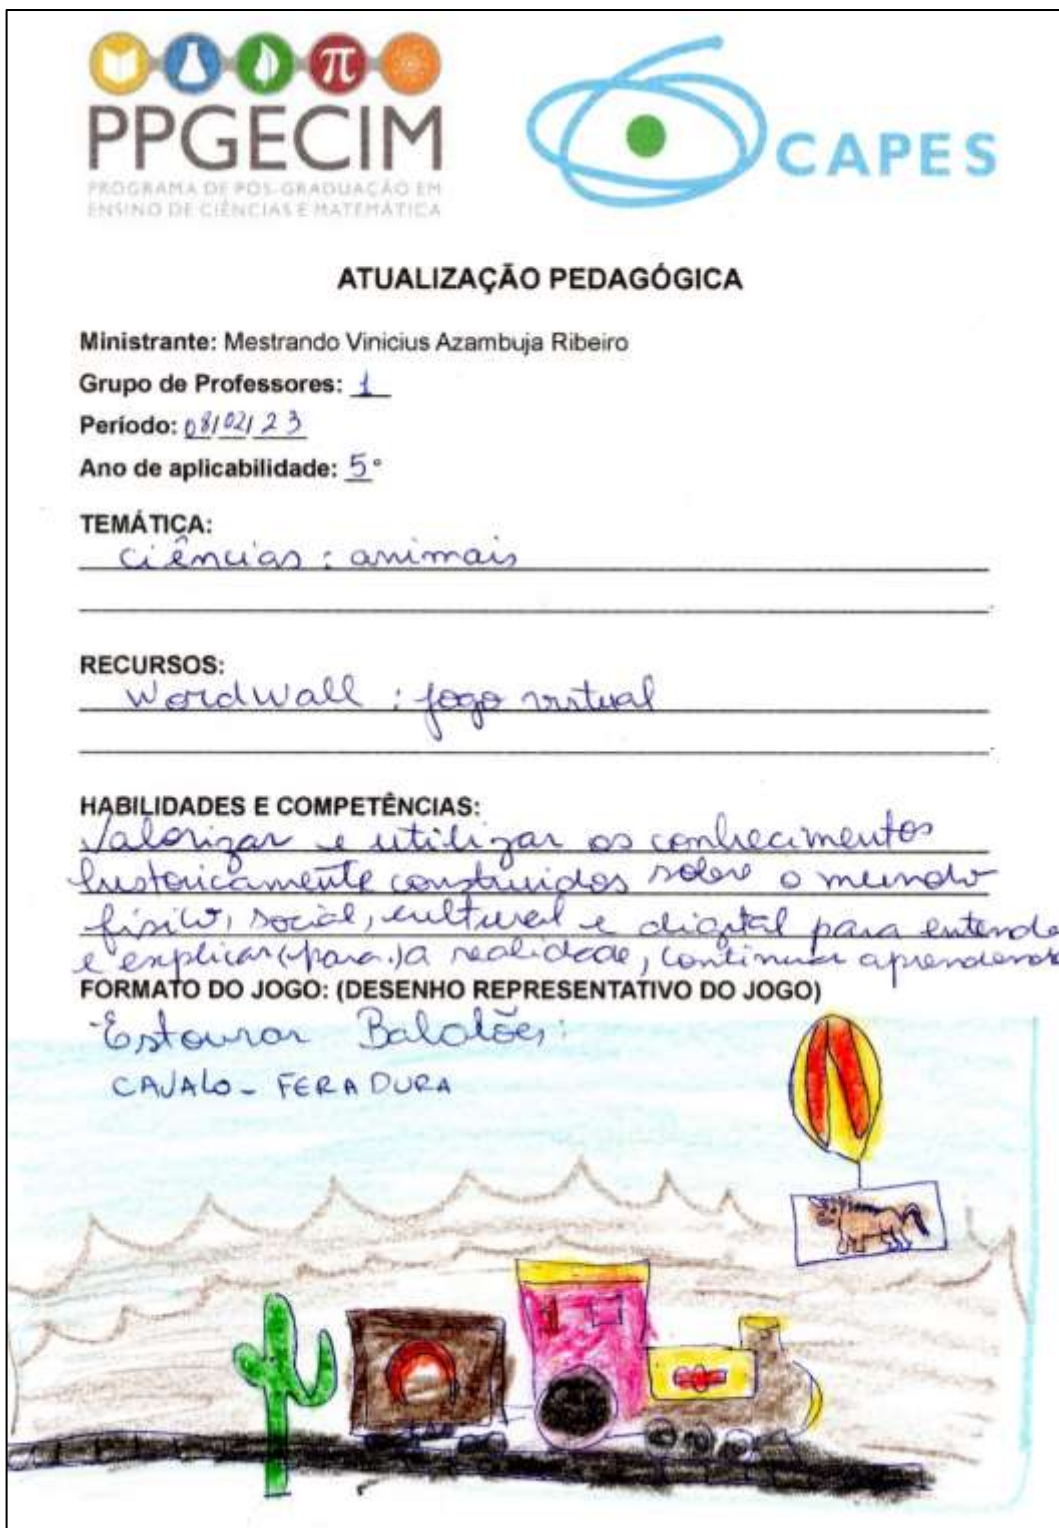 PPGECIM
PROGRAMA DE PÓS-GRADUAÇÃO EM
ENSINO DE CIÊNCIAS E MATEMÁTICA
CAPES
ATUALIZAÇÃO PEDAGÓGICA
Ministrante: Mestrando Vinicius Azambuja Ribeiro
Grupo de Professores: 1
Período: 08/02/23
Ano de aplicabilidade: 5°
TEMÁTICA:
Ciências: animais
RECURSOS:
Wordwall: jogo virtual
HABILIDADES E COMPETÊNCIAS:
Valorizar e utilizar os conhecimentos
historicamente construidos sobre o mundo
físico, social, cultural e digital para entende
e explicar (para.) a realidade, continuar aprendendo
FORMATO DO JOGO: (DESENHO REPRESENTATIVO DO JOGO)
-Estourar Balolões:
CAVALO - FERADURA